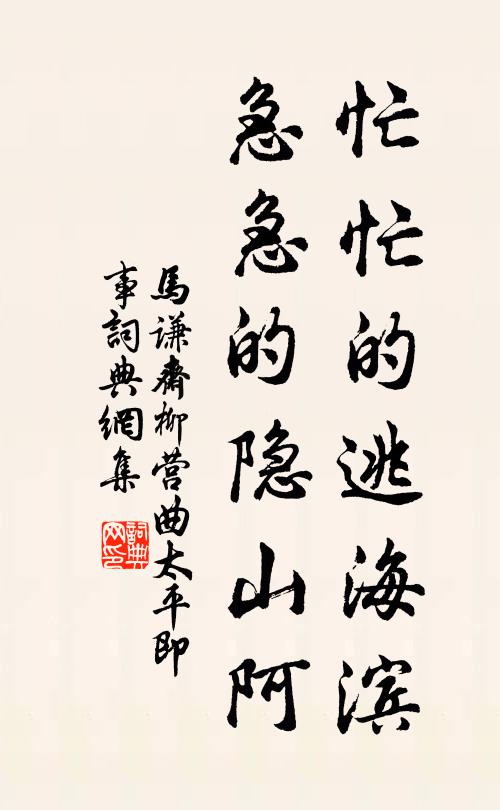 忙忙的逃海滨
急急的隐山阿
馬谦齋柳营曲太平即
事詞典網集
詞典
网印